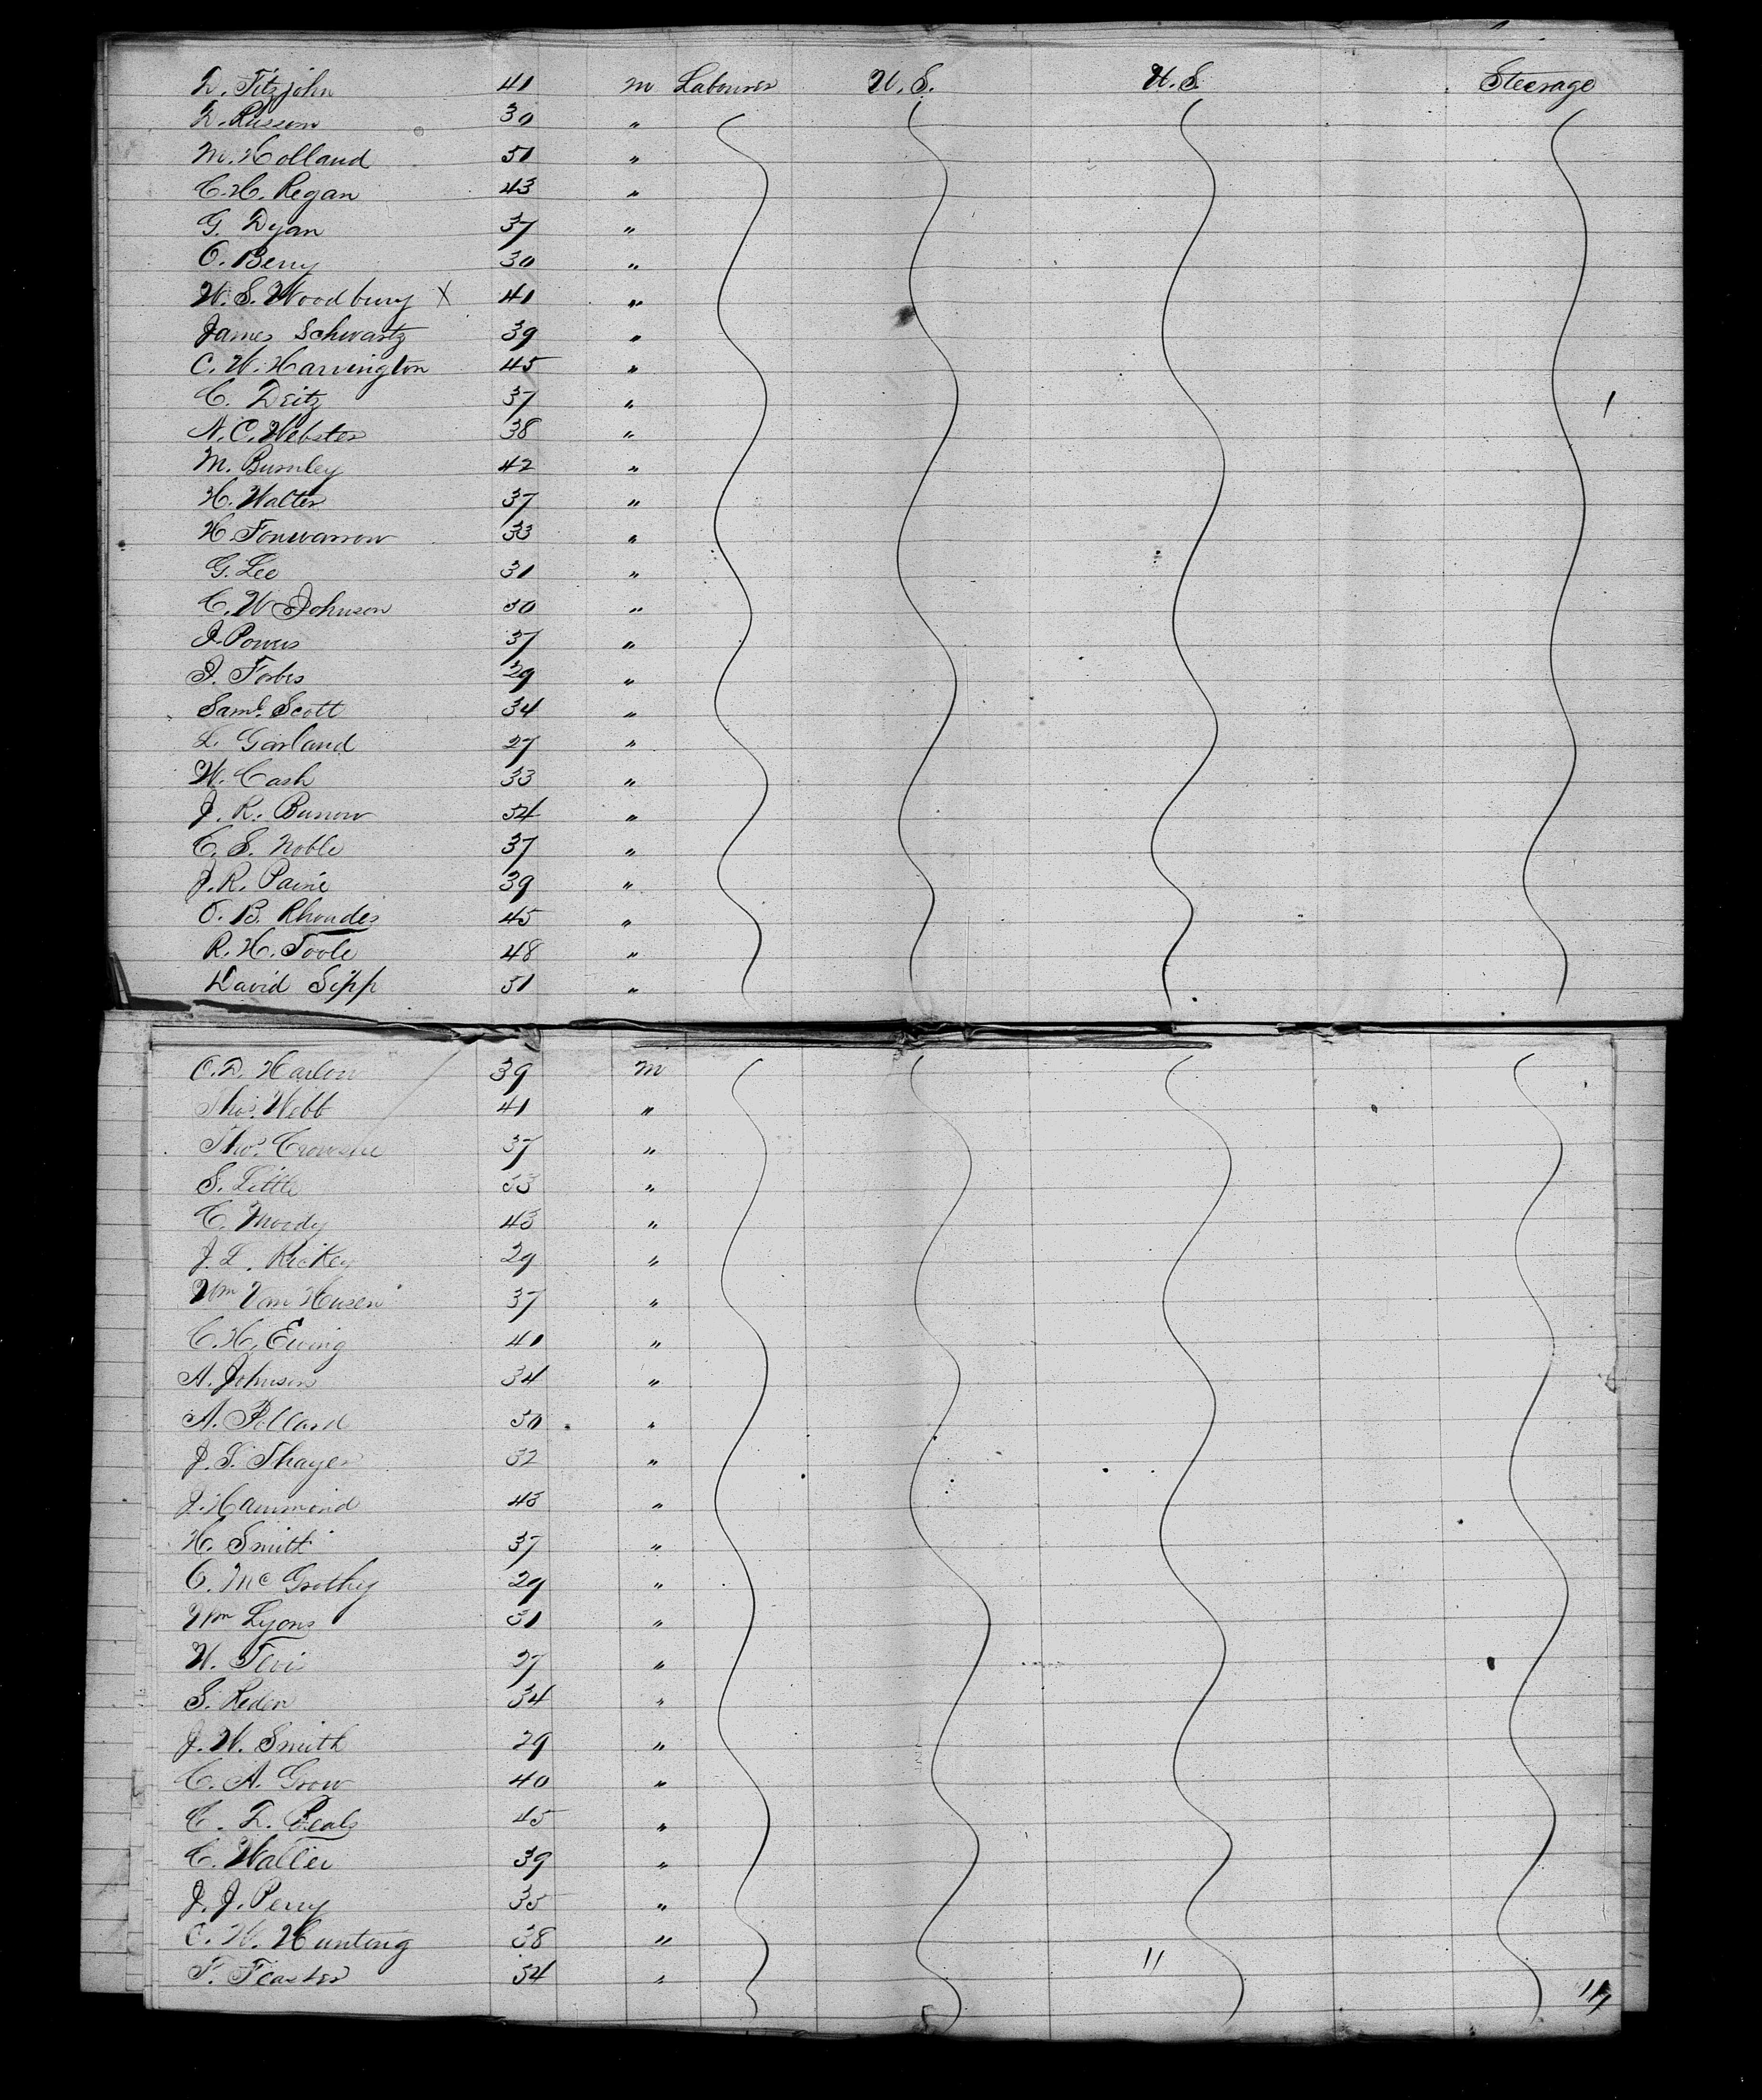 D. Fitzjohn 41 m Labourer U.S. U.S. Steerage
D. Russom 30 "
M. Holland 51 "
C. H. Regan 43 "
G. Dyan 37 "
O. Berry 30 "
W. S. Woodbury X 41 "
James Schwartz 39 "
C. W. Harrington 45 "
C. Deitz 37 "
N. C. Webster 38 "
M. Burnley 42 "
H. Walter 37 "
H. 33 "
G. Lee 31 "
C. W Johnson 30 "
J. Powers 37 "
J. Forbes 29 "
Saml. Scott 34 "
L. Garland 27 "
W. Cash 33 "
J. R. Burrow 34 "
C. S. Noble 37 "
J. R. Paine 39 "
O. B. Rhoades 45 "
R. H. Toole 48 "
David Sipp 51 "
C. D. Harlow 39 m
Thos. Webb 41 "
Thos. 37 "
S. Little 33 "
C. Moody 43 "
J. L. Rickey 29 "
Wm Van Husen 37 "
C. H. Ewing 41 "
A. Johnson 34 "
A. Pollard 30 "
J. S. Thayer 32 "
J. Hammond 45 "
H. Smith 37 "
C. Mc Grothy 29 "
Wm Lyons 31 "
W. Tevis 27 "
S. Reden 34 "
J. W. Smith 29 "
C. A. Grow 40 "
C. D. Beals 45 "
C. Waller 39 "
J. J. Perry 35 "
C. W. Hunting 38 " 11
F. Feaster 34 "